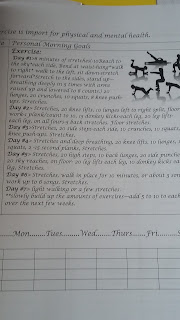 rcise is import for physical and mental health.
Personal Morning Goals
Exercise:
Day #1= 10 minute of stretches, 10 Reach to
the sky/each side. Bend at waist/hang*walk
to right* walk to the left, sit down stretch
forward*stretch to the sides, stand up=
breathing deeply 10 x times with arms
raised up and lowered to 8 counts) 20
lunges, 20 crunches, 10 squats, 6 knee push-
ups, stretches.
Day #2= Stretches, 20 knee lifts, 10 lunges left to right split, floor
works planks/count to 10, 15 donkey kicks/each leg, 20 leg lifts
each leg, on all fours 4 back stretches. Floor stretches.
Day #3=Stretches, 20 side steps each side, 10 crunches, 10 squats,
knee push-ups, stretches.
Day #4= Stretches and deep breathing, 20 knee lifts, 10 lunges,
squats, 2 -15 second planks, stretches.
Day #5= Stretches, 20 high steps, 10 back lunges, 20 side punches
20 ski reaches, on floor: 20 leg lifts each leg, 10 donkey kicks ea
leg, stretches.
Day #6= Stretches, walk in place for 10 minutes, or about 3 son
work up to 6 songs. Stretches.
Day #7= light walking or a few stretches.
**slowly build up the amounts of exercises--add 5 to 10 to each
over the next few weeks.
Mon........Tues........Wed........Thurs........Fri........